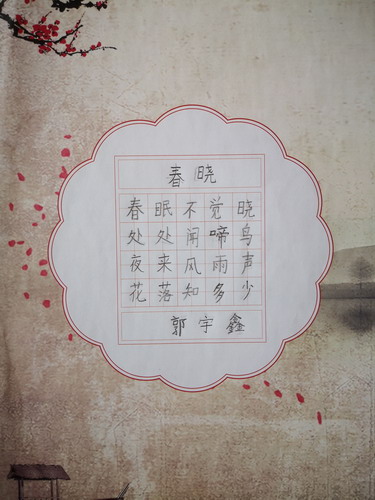 春晓
春眠不觉晓
处处闻啼鸟
夜来风雨声
花落知多少
郭宇鑫